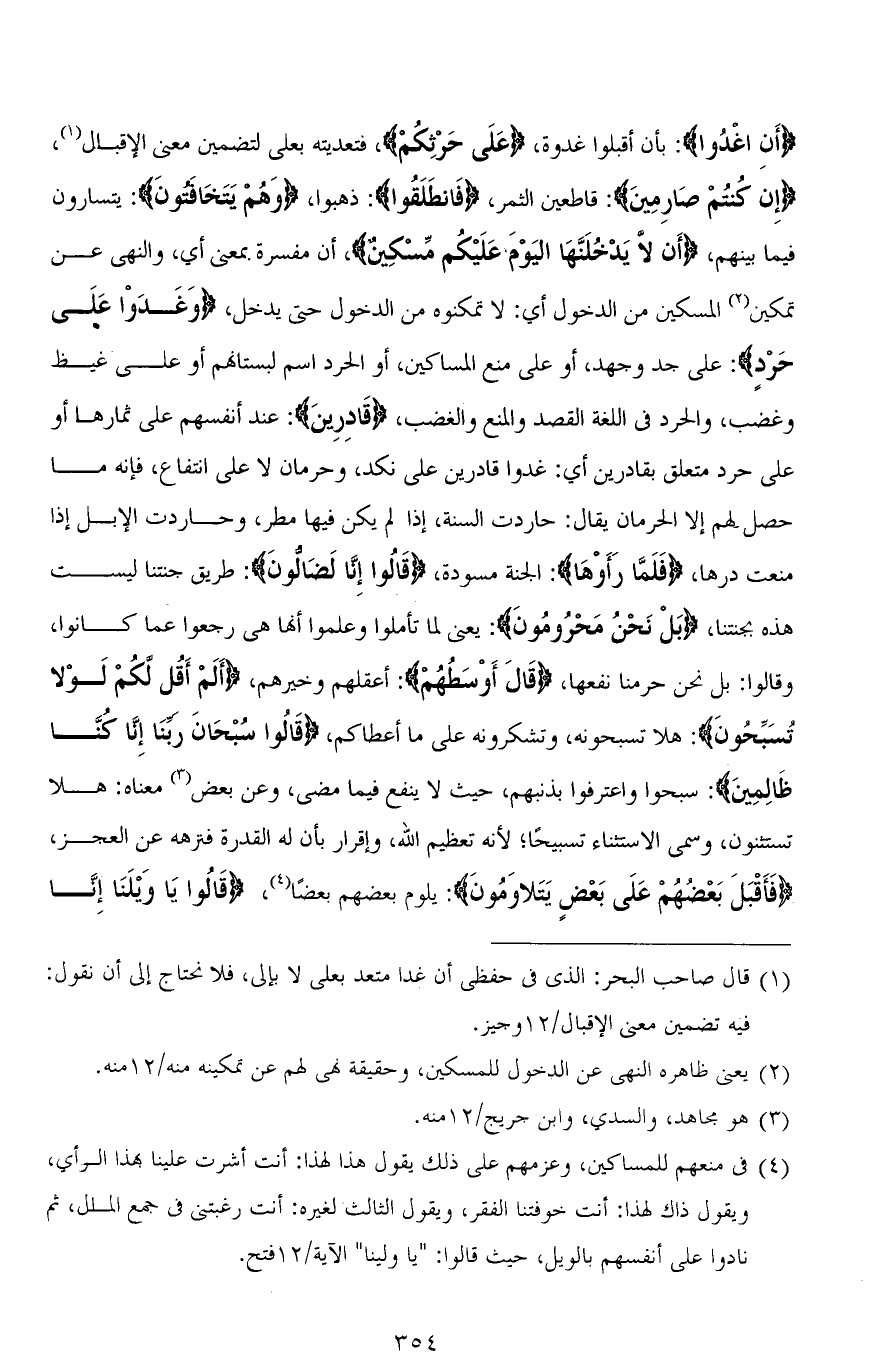 ﴿أَنِ اغْدُوا﴾: بأن أقبلوا غدوة، ﴿عَلَى حَرْثِكُمْ﴾، فتعديته بعلى لتضمين معنى الإقبـال(١)،
﴿إِن كُنتُمْ صَارِمِينَ﴾: قاطعين الثمر، ﴿فَانطَلَقُوا﴾: ذهبوا، ﴿وَهُمْ يَتَخَافَتُونَ﴾: يتسارون
فيما بينهم، ﴿أَن لاَّ يَدْخُلَنَّهَا اليَوْمَ عَلَيْكُم مِّسْكِينٌ﴾، أن مفسرة بمعنى أي، والنهى عـــن
تمكين(٢) المسكين من الدخول أي: لا تمكنوه من الدخول حتى يدخل، ﴿وَغَـــدَوْا عَلَـــى
حَرْدٍ﴾: على جد وجهد، أو على منع المساكين، أو الحرد اسم لبستانهم أو علـــى غيـــظ
وغضب، والحرد فى اللغة القصد والمنع والغضب، ﴿قَادِرِينَ﴾: عند أنفسهم على ثمارهـا أو
على حرد متعلق بقادرين أي: غدوا قادرين على نكد، وحرمان لا على انتفاع، فإنه مـــا
حصل لهم إلا الحرمان يقال: حاردت السنة، إذا لم يكن فيها مطر، وحـــاردت الإبـــل إذا
منعت درها، ﴿فَلَمَّا رَأَوْهَا﴾: الجنة مسودة، ﴿قَالُوا إِنَّا لَضَالُّونَ﴾: طريق جنتنا ليســـت
هذه بجنتنا، ﴿بَلْ نَحْنُ مَحْرُومُونَ﴾: يعنى لما تأملوا وعلموا أنها هى رجعوا عما كـــانوا،
وقالوا: بل نحن حرمنا نفعها، ﴿قَالَ أَوْسَطُهُمْ﴾: أعقلهم وخيرهم، ﴿أَلَمْ أَقُل لَّكُمْ لَـــوْلا
تُسَبِّحُونَ﴾: هلا تسبحونه، وتشكرونه على ما أعطاكم، ﴿قَالُوا سُبْحَانَ رَبِّنَا إِنَّا كُنَّـــا
ظَالِمِينَ﴾: سبحوا واعترفوا بذنبهم، حيث لا ينفع فيما مضى، وعن بعض(٣) معناه: هـــلا
تستثنون، وسمى الاستثناء تسبيحًا؛ لأنه تعظيم الله، وإقرار بأن له القدرة فنزهه عن العجـز،
﴿فَأَقْبَلَ بَعْضُهُمْ عَلَى بَعْضٍ يَتَلاوَمُونَ﴾: يلوم بعضهم بعضًا(٤)، ﴿قَالُوا يَا وَيْلَنَا إِنَّـــا
(١) قال صاحب البحر: الذى فى حفظى أن غدا متعد بعلى لا بإلى، فلا نحتاج إلى أن نقول:
فيه تضمين معنى الإقبال/١٢وجيز.
(٢) يعنى ظاهره النهى عن الدخول للمسكين، وحقيقة نهى لهم عن تمكينه منه/١٢منه.
(٣) هو مجاهد، والسدي، وابن جريج/١٢منه.
(٤) فى منعهم للمساكين، وعزمهم على ذلك يقول هذا لهذا: أنت أشرت علينا بهذا الـرأي،
ويقول ذاك لهذا: أنت خوفتنا الفقر، ويقول الثالث لغيره: أنت رغبتنى فى جمع المـلل، ثم
نادوا على أنفسهم بالويل، حيث قالوا: "يا ولينا" الآية/١٢فتح.
٣٥٤